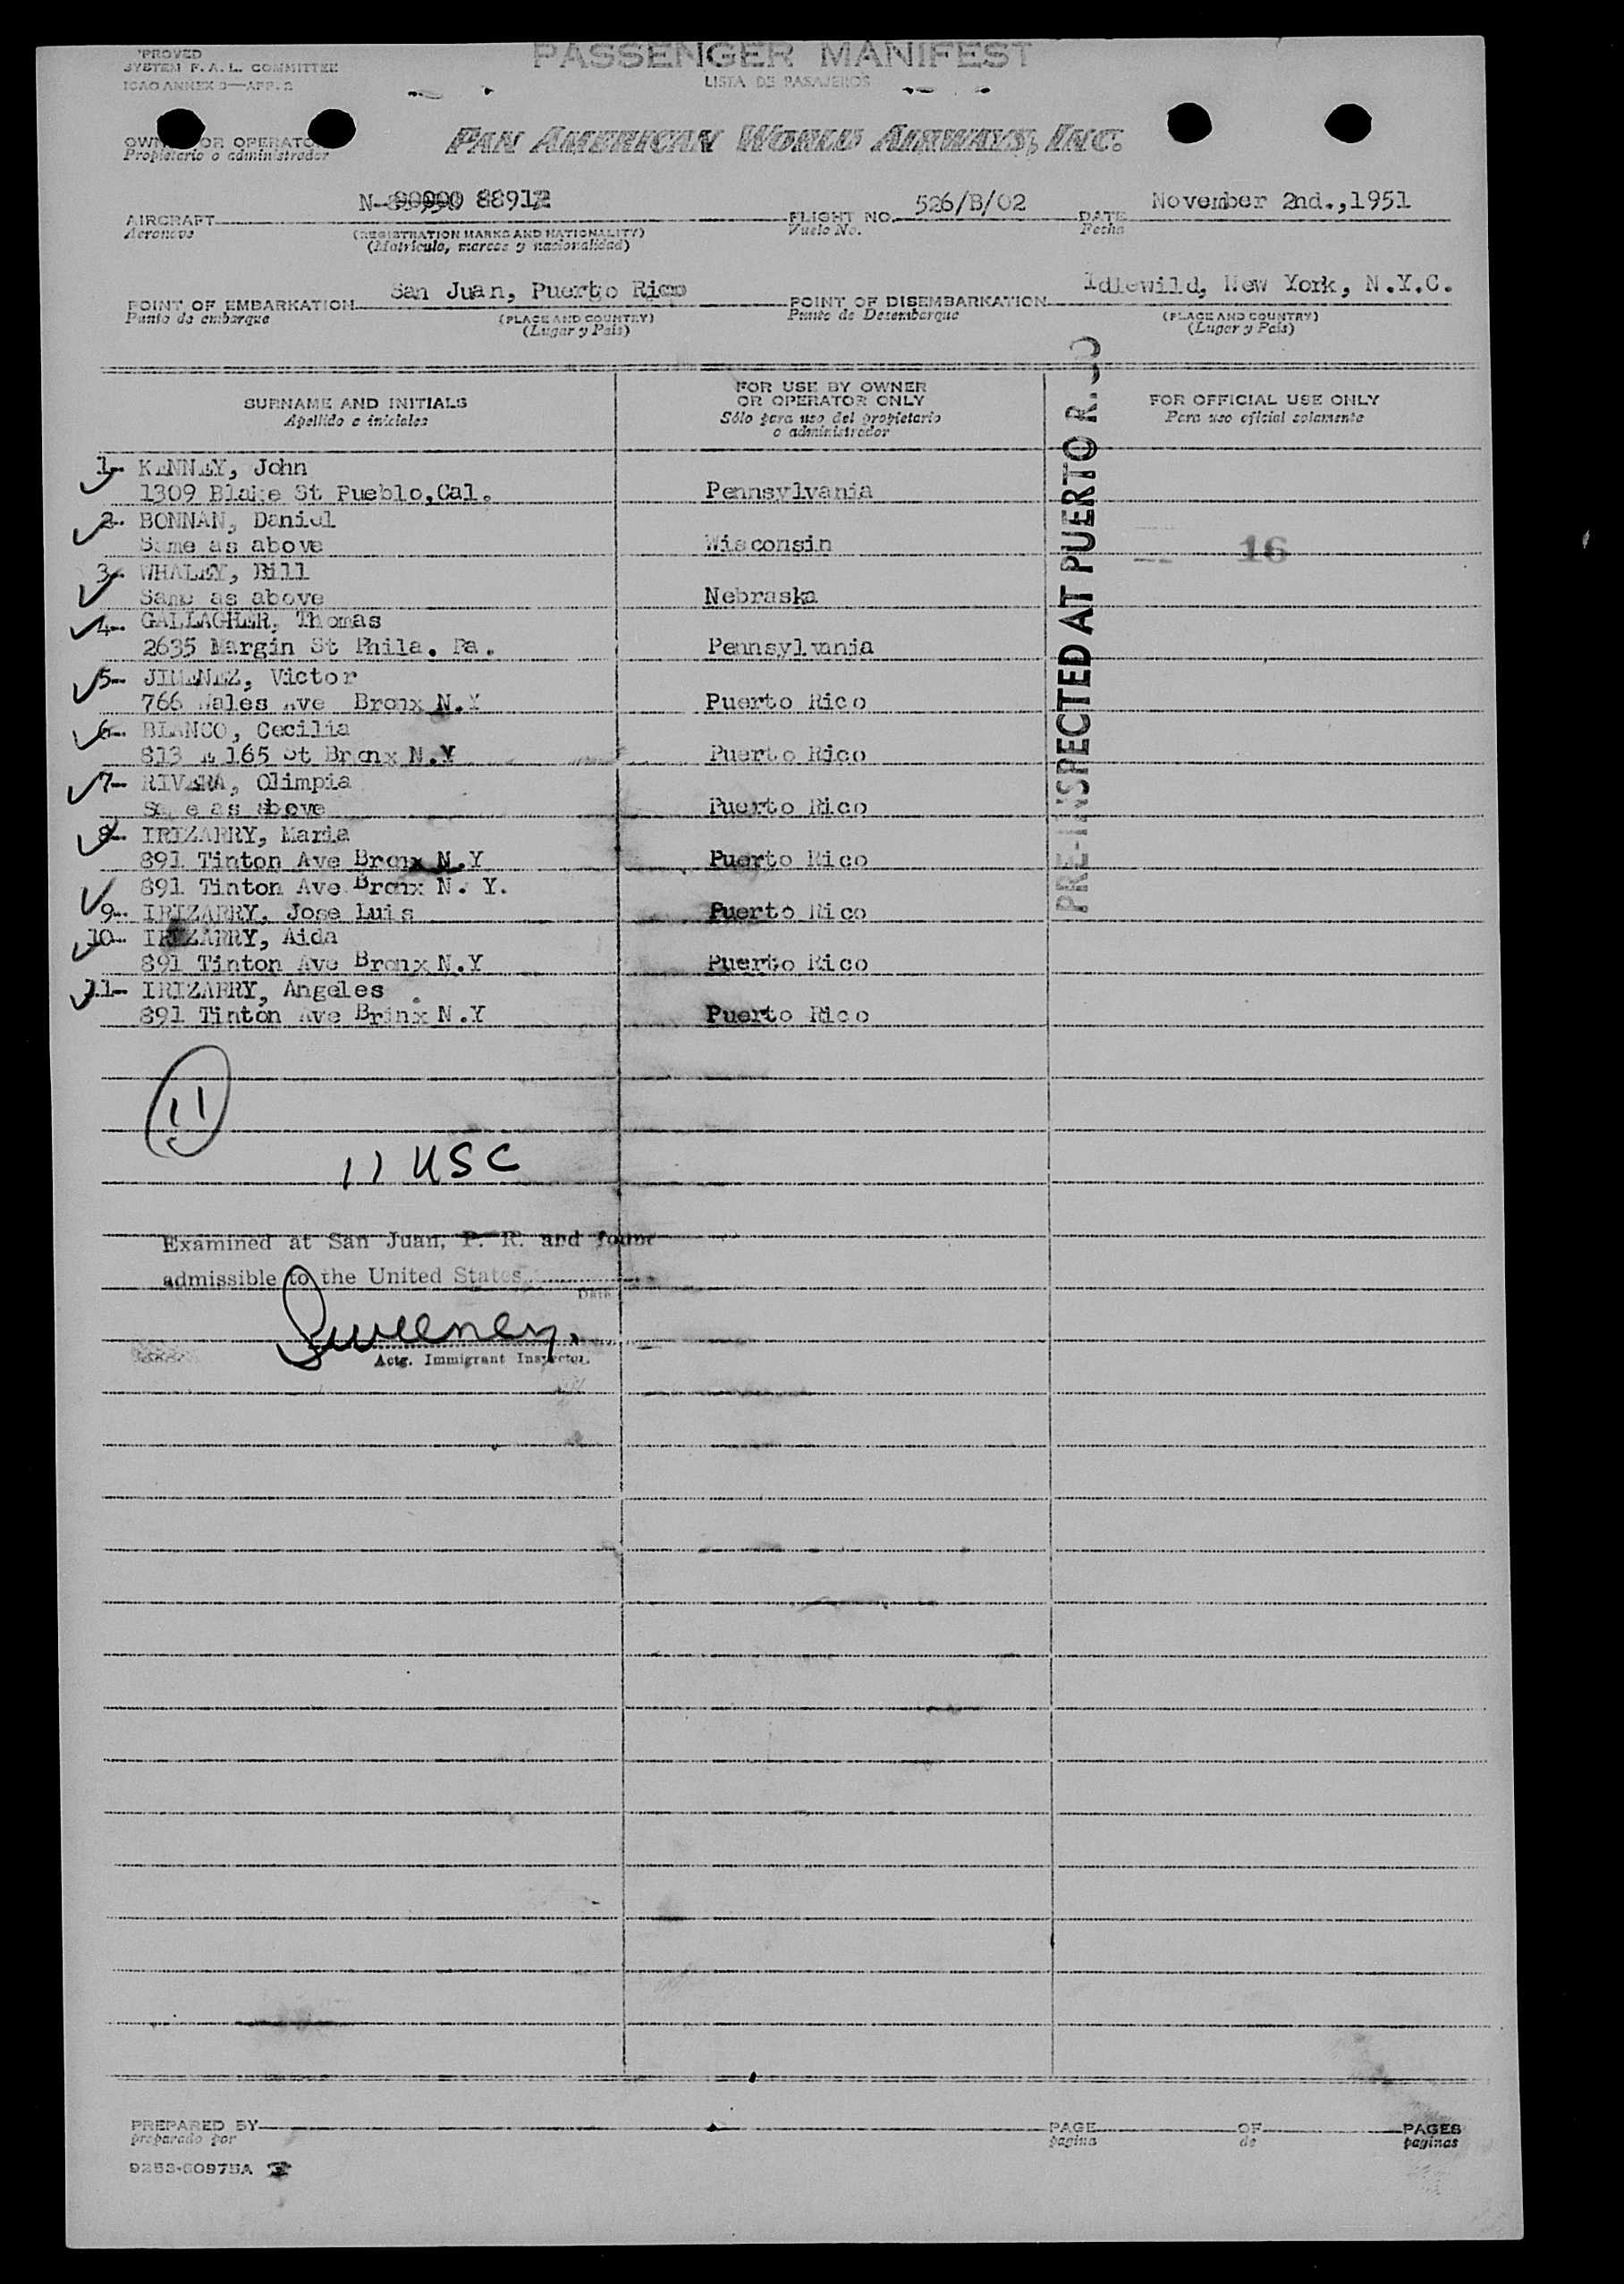 PROVED
SYSTEM F.A.L. COMMITTEE
ICAO ANNEX 9—APP. 2
PASSENGER MANIFEST
LISTA DE PASAJEROS
OWNER OR OPERATOR
Propietario o administrador
PAN AMERICAN WORLD AIRWAYS, INC.
AIRCRAFT N- 88912 FLIGHT NO. 526/B/02 DATE November 2nd.,1951
Aeronave (REGISTRATION MARKS AND NATIONALITY) Vuelo No. Fecha
(Matrícula, marcas y nacionalidad)
POINT OF EMBARKATION San Juan, Puerto Rico POINT OF DISEMBARKATION Idlewild, New York, N.Y.C.
Punto de embarque (PLACE AND COUNTRY) Punto de Desembarque (PLACE AND COUNTRY)
(Lugar y País) (Lugar y País)
SURNAME AND INITIALS
Apellido e iniciales
FOR USE BY OWNER
OR OPERATOR ONLY
Sólo para uso del propietario
o administrador
FOR OFFICIAL USE ONLY
Para uso oficial solamente
1- KENNEY, John
1309 Blake St Pueblo,Cal. Pennsylvania
2- BONNAN, Daniel
Same as above Wisconsin
16
3- WHALEY, Bill
Same as above Nebraska
4- GALLAGHER, Thomas
2635 Margin St Phila. Pa. Pennsylvania
5- JIMENEZ, Victor
766 Wales Ave Bronx N.Y Puerto Rico
6- BLANCO, Cecilia
813 E 165 St Bronx N.Y Puerto Rico
7- RIVERA, Olimpia
Same as above Puerto Rico
8- IRIZARRY, Maria
891 Tinton Ave Bronx N.Y Puerto Rico
891 Tinton Ave Bronx N. Y.
9- IRIZARRY, Jose Luis Puerto Rico
10- IRIZARRY, Aida
891 Tinton Ave Bronx N.Y Puerto Rico
11- IRIZARRY, Angeles
891 Tinton Ave Brinx N.Y Puerto Rico
PRE-INSPECTED AT PUERTO R.
11
11 USC
Examined at San Juan, P. R. and found
admissible to the United States
Date
Sweeney.
Actg. Immigrant Inspector.
PREPARED BY PAGE OF PAGES
preparado por pagina de paginas
9253-60975A